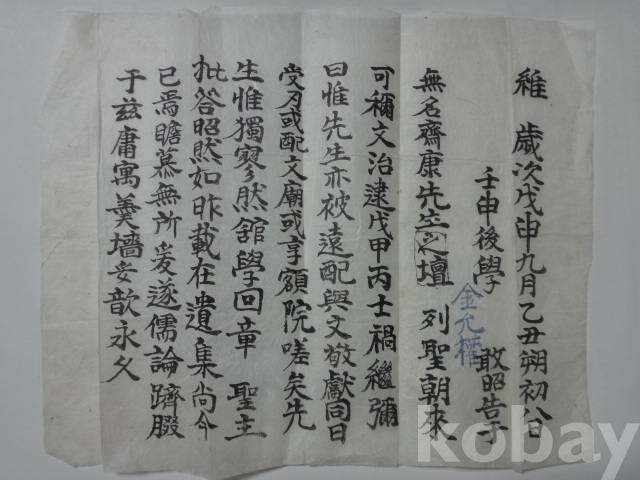 維 歲次戊申九月乙丑朔初八日
壬申後學 金允權 敢昭告于
無名齋康先生之壇 列聖朝來
可稱文治逮戊甲丙士禍繼彌
曰惟先生亦被遠配與文敬獻同日
受刃或配文廟或享額院嗟矣先
生惟獨寥然舘學回章 聖主
批答昭然如昨載在遺集尚今
已焉瞻慕無所爰遂儒論躋腏
于玆庸寓羹墻妥歆永久
kobay